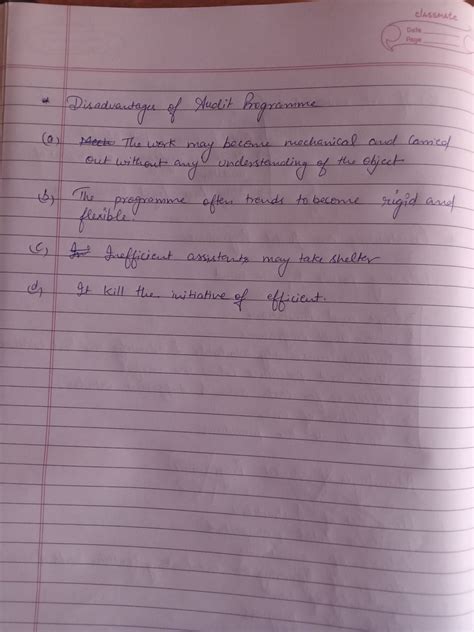 classmate
Date
Page
* Disadvantages of Audit Programme
(a) The work may become mechanical and carried
out without any understanding of the object
b) The programme often trends to become rigid and
flexible.
c) Inefficient assistants may take shelter
d) It kill the initiative of efficient.